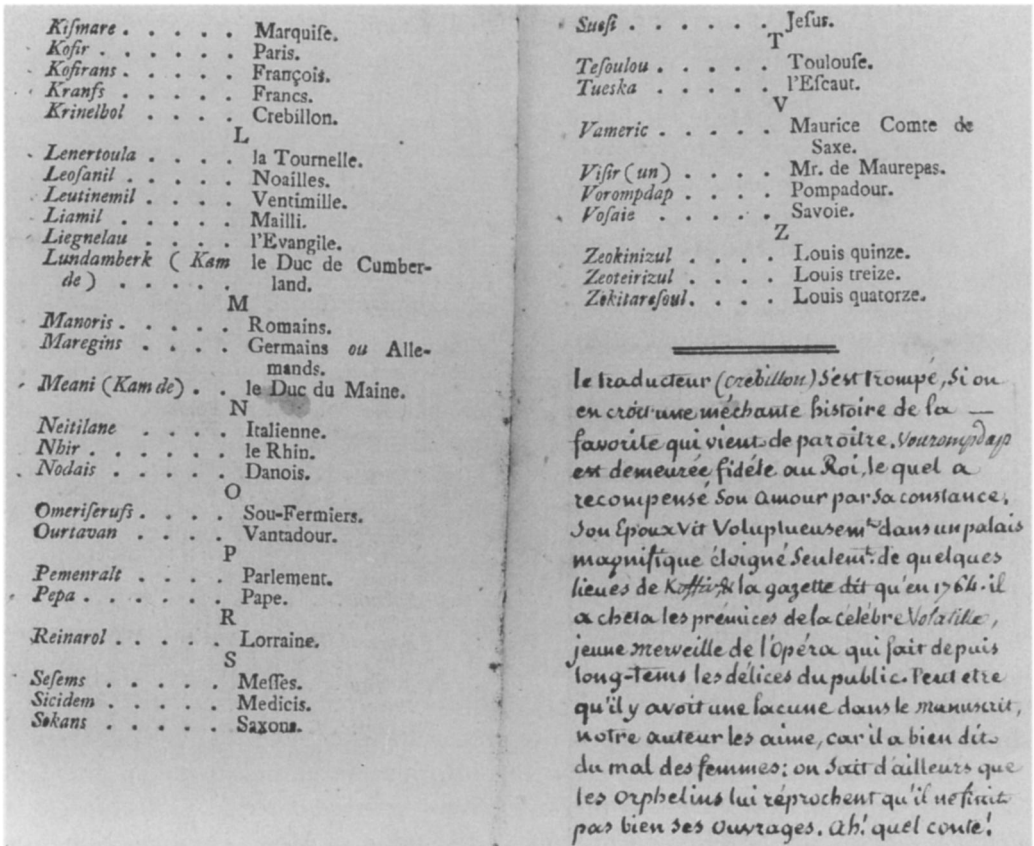 Kiſmare . . . . . Marquiſe.
Koſir . . . . . Paris.
Koſirans . . . . . François.
Kranfs . . . . . Francs.
Krinelbol . . . . Crebillon.
L
Lenertoula . . . . la Tournelle.
Leoſanil . . . . . Noailles.
Leutinemil . . . . Ventimille.
Liamil . . . . . Mailli.
Liegnelau . . . . l'Evangile.
Lundamberk ( Kam le Duc de Cumber-
de ) . . . . . land.
M
Manoris . . . . . Romains.
Maregins . . . . Germains ou Alle-
mands.
Meani (Kam de) . . le Duc du Maine.
N
Neitilane . . . . Italienne.
Nhir . . . . . le Rhin.
Nodais . . . . . Danois.
O
Omeriſeruſs . . . . Sou-Fermiers.
Ourtavan . . . . Vantadour.
P
Pemenralt . . . . Parlement.
Pepa . . . . . . Pape.
R
Reinarol . . . . . Lorraine.
S
Seſems . . . . . Meſſes.
Sicidem . . . . . Medicis.
Sokans . . . . . Saxons.
Suesi . . . . . . Jeſus.
T
Teſoulou . . . . . Toulouſe.
Tueska . . . . . l'Eſcaut.
V
Vameric . . . . . Maurice Comte de
Saxe.
Viſir (un) . . . . Mr. de Maurepas.
Vorompdap . . . . Pompadour.
Voſaie . . . . . Savoie.
Z
Zeokinizul . . . . Louis quinze.
Zeoteirizul . . . . Louis treize.
Zokitaresoul . . . . Louis quatorze.
le traducteur (crebillon) s'est trompé, si on
en croit une méchante histoire de la —
favorite qui vient de paroître. Vourompdap
est demeurée fidéle au Roi, le quel a
recompensé son amour par sa constance.
son Epoux vit Voluplueusemt. dans un palais
magnifique éloigné seulemt. de quelques
lieues de la gazette dit qu'en 1764. il
acheta les prémices de la célébre
jeune merveille de l'Opéra qui fait depuis
long-tems les délices du public. Peut etre
qu'il y avoit une lacune dans le manuscrit,
notre auteur les aime, car il a bien dit
du mal des femmes; on sait d'ailleurs que
les orphelins lui réprochent qu'il ne finit
pas bien ses ouvrages. Ah! quel conte!